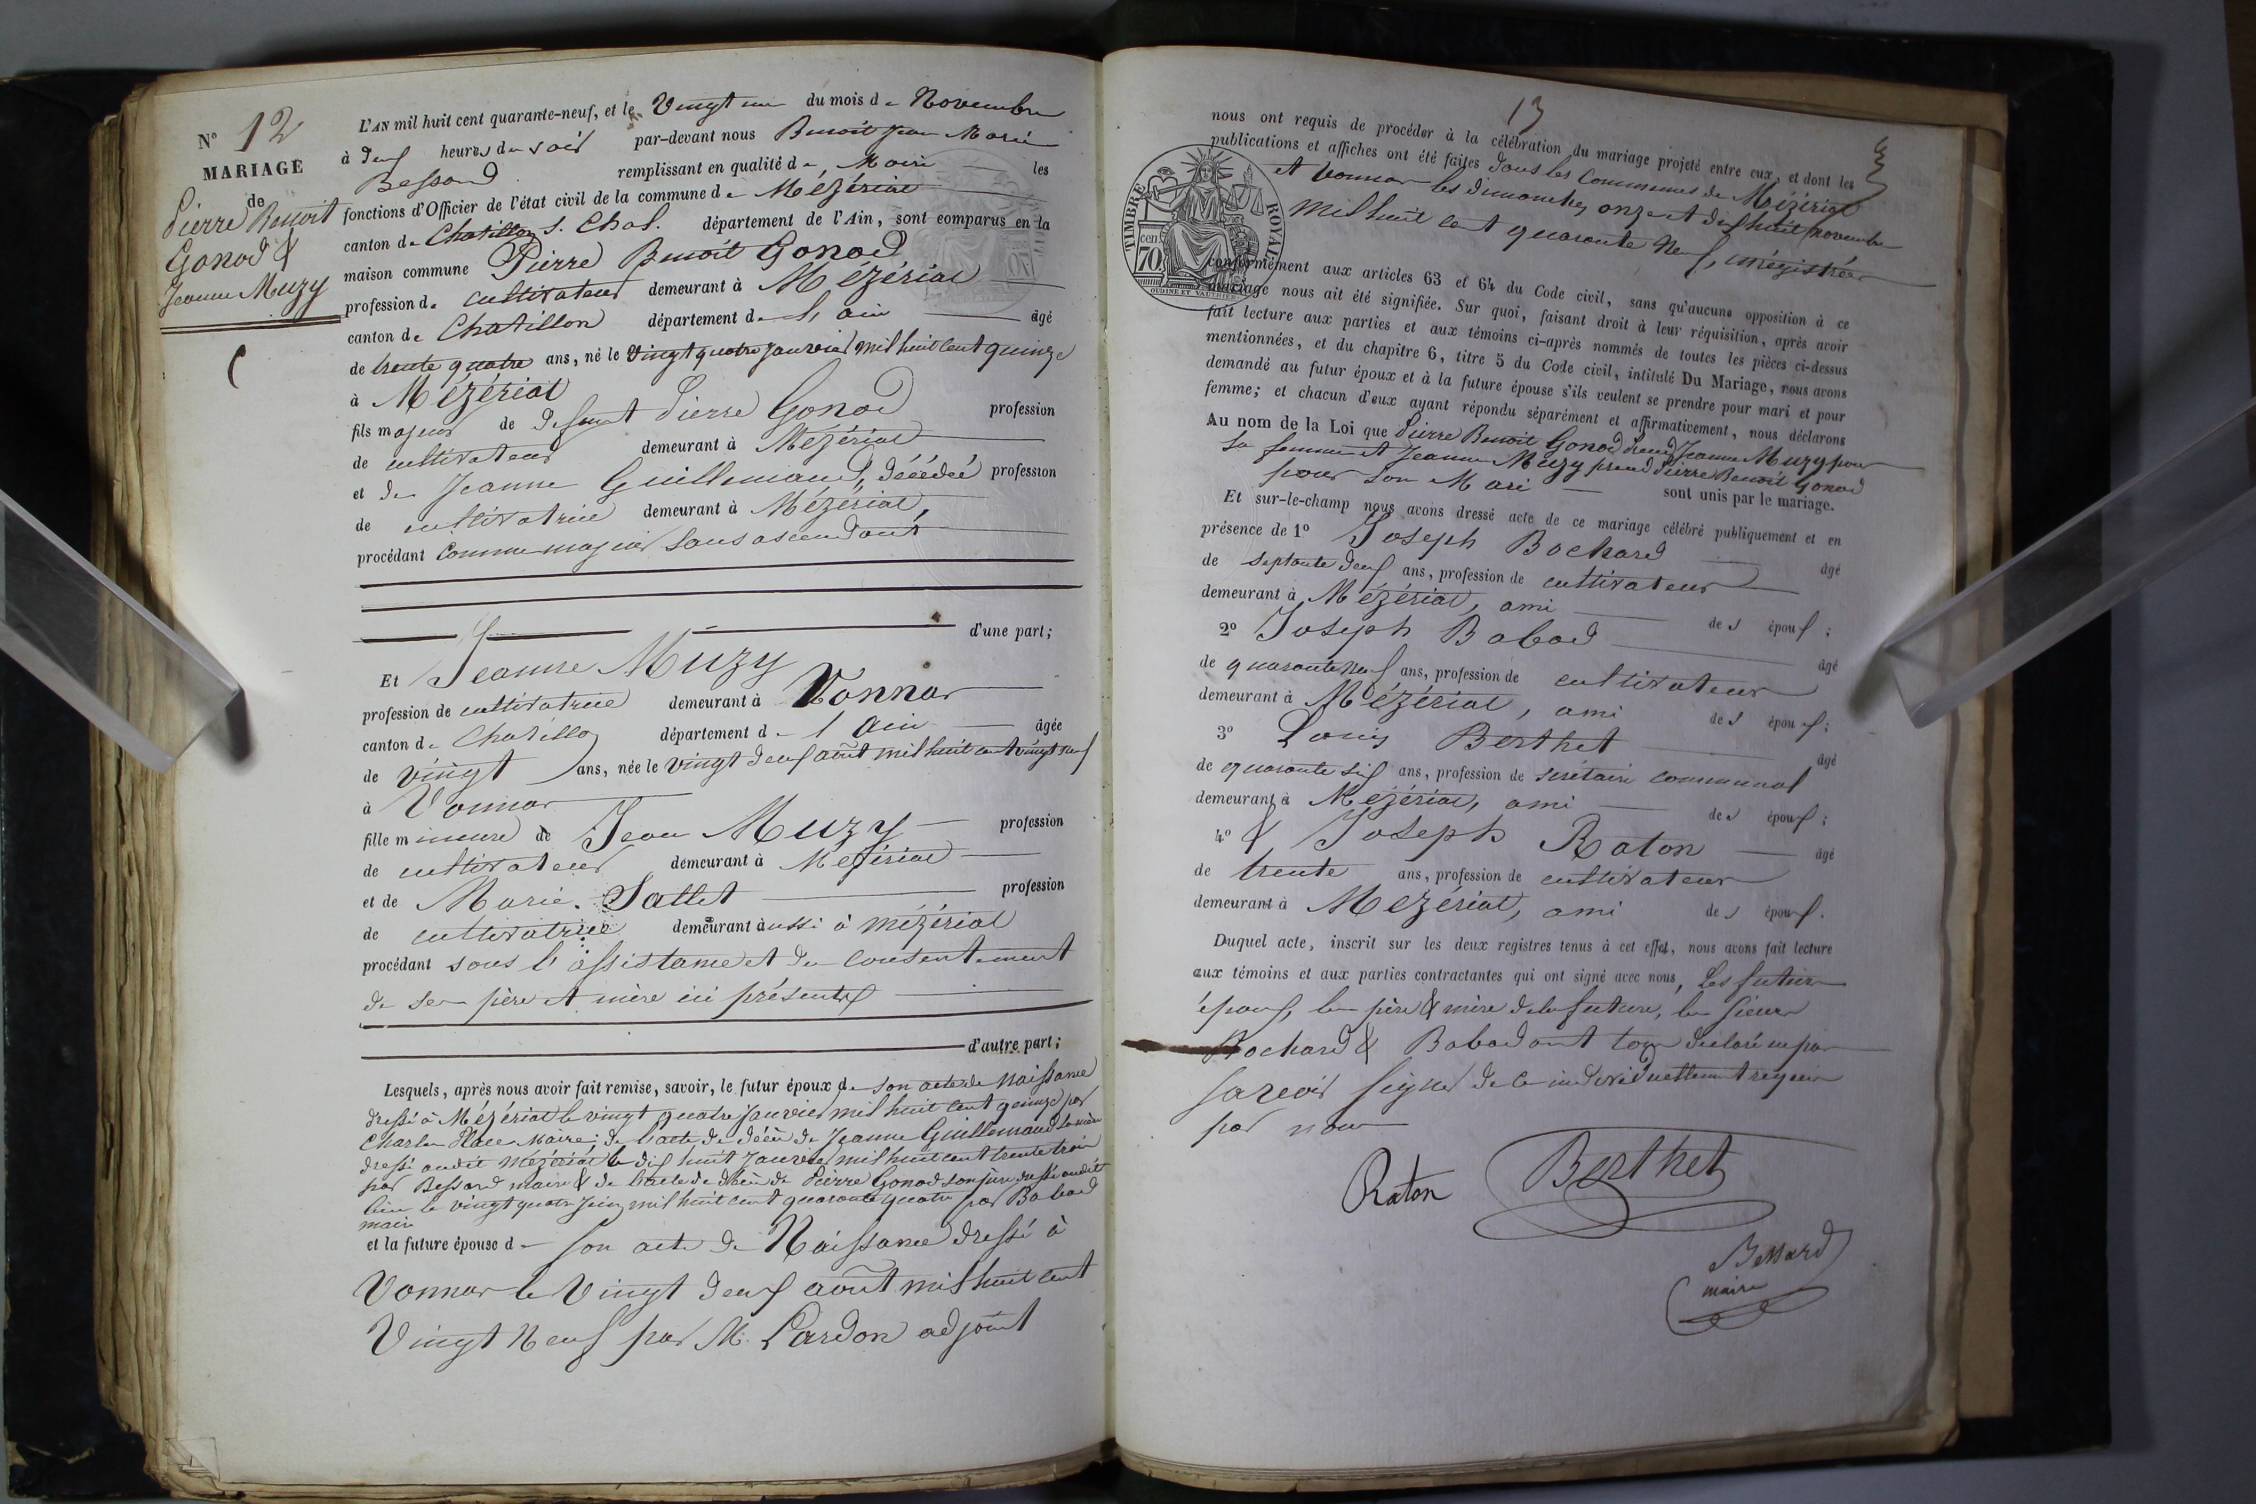 N° 12
MARIAGE
de
Pierre Benoit
Gonod &
Jeanne Muzy
L'AN mil huit cent quarante-neuf, et le Vingt un du mois de Novembre
à deux heures du soir par-devant nous Benoit Jean Marie
Bessard remplissant en qualité de Maire les
fonctions d'Officier de l'état civil de la commune de Mézériat
canton de Chatillon s. Chal. département de l'Ain, sont comparus en la
maison commune Pierre Benoit Gonod
profession de cultivateur demeurant à Mézériat
canton de Chatillon département de l'ain âgé
de trente quatre ans, né le vingt quatre Janvier mil huit cent quinze
à Mézériat
fils majeur de defunt Pierre Gonod profession
de cultivateur demeurant à Mézériat
et de Jeanne Guillemaud, décédée profession
de cultivatrice demeurant à Mézériat,
procédant comme majeur sans ascendants
d'une part;
Et Jeanne Muzy
profession de cultivatrice demeurant à Vonnas
canton de Chatillon département de l'ain âgée
de vingt ans, née le vingt deux août mil huit cent vingt neuf
à Vonnas
fille mineure de Jean Muzy profession
de cultivateur demeurant à Mézériat
et de Marie Sallet profession
de cultivatrice demeurant aussi à mézériat
procédant sous l'assistance et du consentement
de ses père et mère ici présents
d'autre part;
Lesquels, après nous avoir fait remise, savoir, le futur époux de son acte de Naissance
dressé à Mézériat le vingt quatre janvier mil huit cent quinze par
Charles Place Maire; de l'acte de décès de Jeanne Guillemaud sa mère
dressé audit Mézériat le dix huit Janvier mil huit cent trente trois
par Bessard maire & de l'acte de décès de Pierre Gonod son père dressé audit
lieu le vingt quatre juin mil huit cent quarante quatre par Babad
maire
et la future épouse de son acte de Naissance dressé à
Vonnas le Vingt deux août mil huit cent
Vingt Neuf par M. Lardon adjoint
13
nous ont requis de procéder à la célébration du mariage projeté entre eux, et dont les
publications et affiches ont été faites dans les Communes de Mézériat
et Vonnas les dimanches onze et dix huit novembre
mil huit cent quarante Neuf, enrégistrées
TIMBRE ROYAL
70 cen
OUDINE ET VAUTHIER
conformément aux articles 63 et 64 du Code civil, sans qu'aucune opposition à ce
mariage nous ait été signifiée. Sur quoi, faisant droit à leur réquisition, après avoir
fait lecture aux parties et aux témoins ci-après nommés de toutes les pièces ci-dessus
mentionnées, et du chapitre 6, titre 5 du Code civil, intitulé Du Mariage, nous avons
demandé au futur époux et à la future épouse s'ils veulent se prendre pour mari et pour
femme; et chacun d'eux ayant répondu séparément et affirmativement, nous déclarons
Au nom de la Loi que Pierre Benoit Gonod prend Jeanne Muzy pour
sa femme et Jeanne Muzy prend Pierre Benoit Gonod
pour son Mari sont unis par le mariage.
Et sur-le-champ nous avons dressé acte de ce mariage célébré publiquement et en
présence de 1° Joseph Bochard âgé
de septante deux ans, profession de cultivateur
demeurant à Mézériat, ami des époux;
2° Joseph Babad âgé
de quarante neuf ans, profession de cultivateur
demeurant à Mézériat, ami des époux;
3° Louis Berthet âgé
de quarante six ans, profession de secrétaire communal
demeurant à Mézériat, ami des époux;
4° & Joseph Raton âgé
de trente ans, profession de cultivateur
demeurant à Mézériat, ami des époux.
Duquel acte, inscrit sur les deux registres tenus à cet effet, nous avons fait lecture
aux témoins et aux parties contractantes qui ont signé avec nous, Les futurs
époux, les père & mère de la future, les sieurs
Bochard & Babad ont tous déclaré ne pas
savoir signer de ce individuellement requis
par nous
Raton Berthet
Bessard
maire